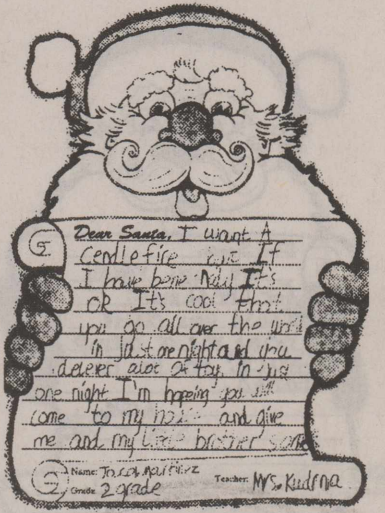 Dear Santa, I want A
Cendlefire but If
I have bene Naly It's
ok It's cool that
you go all over the world
in just one night and you
delever alot of toy in just
one night I'm hopeing you will
come to my house and give
me and my little brother some
Name: Jacob Martinez Teacher: Mrs. Kudrna
Grade: 2 grade